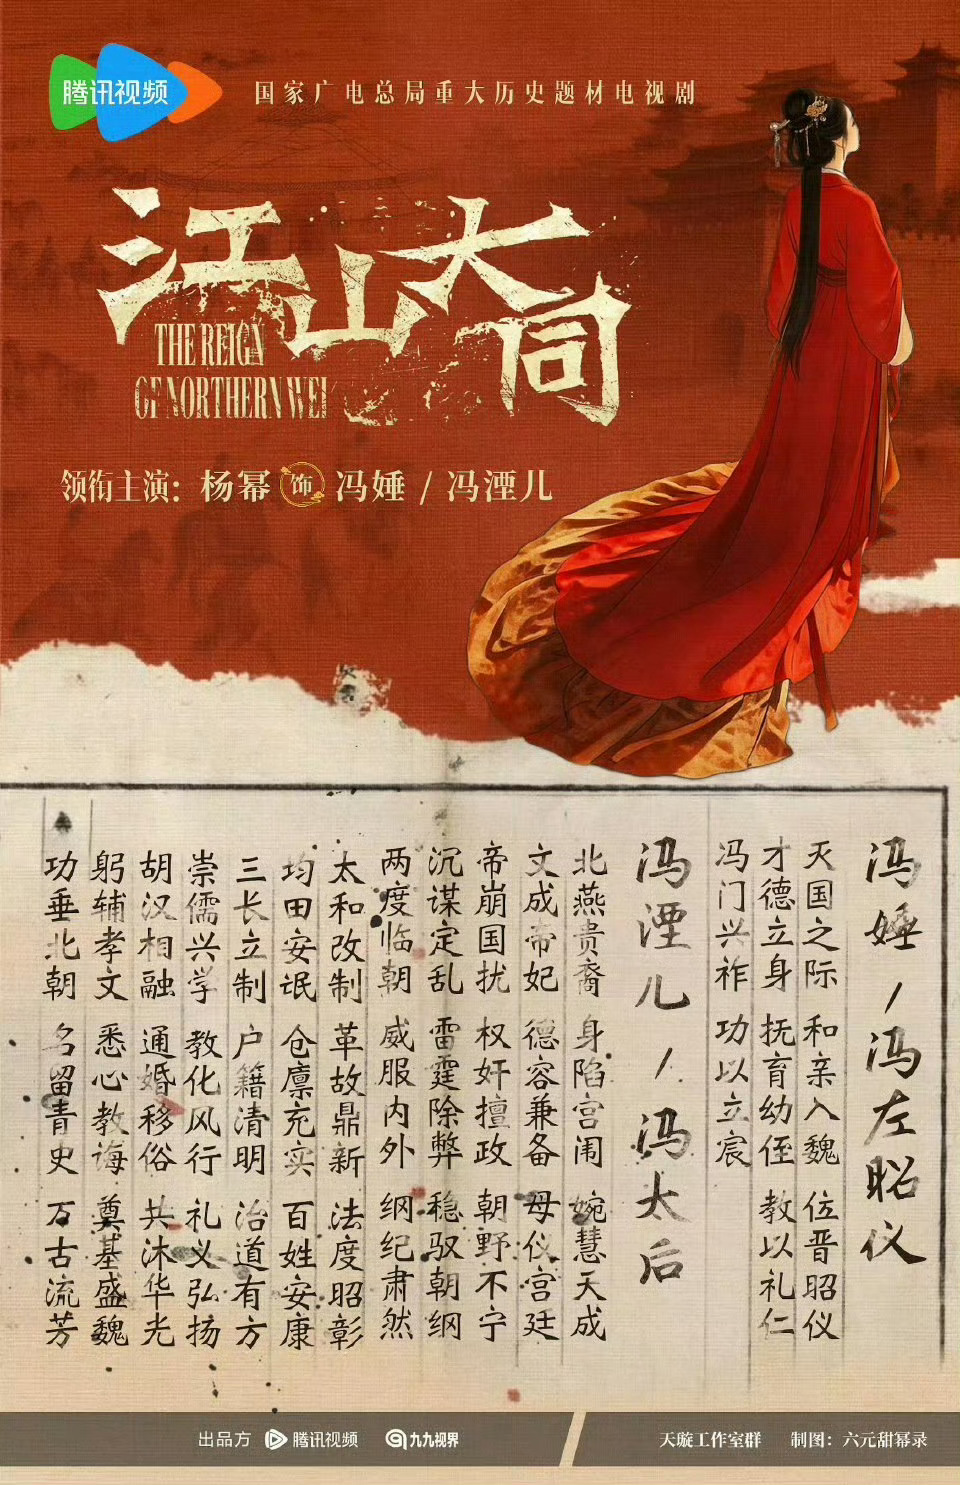 腾讯视频
国家广电总局重大历史题材电视剧
江山大同
THE REIGN
OF NORTHERN WEI
领衔主演：杨幂 饰 冯娷 / 冯湮儿
冯娷/冯左昭仪
灭国之际 和亲入魏 位晋昭仪
才德立身 抚育幼侄 教以礼仁
冯门兴祚 功以立宸
冯湮儿/冯太后
北燕贵裔 身陷宫闱 婉慧天成
文成帝妃 德容兼备 母仪宫廷
帝崩国扰 权奸擅政 朝野不宁
沉谋定乱 雷霆除弊 稳驭朝纲
两度临朝 威服内外 纲纪肃然
太和改制 革故鼎新 法度昭彰
均田安氓 仓廪充实 百姓安康
三长立制 户籍清明 治道有方
崇儒兴学 教化风行 礼义弘扬
胡汉相融 通婚移俗 共沐华光
躬辅孝文 悉心教诲 奠基盛魏
功垂北朝 名留青史 万古流芳
出品方 腾讯视频 九九视界
天璇工作室群 制图：六元甜幂录